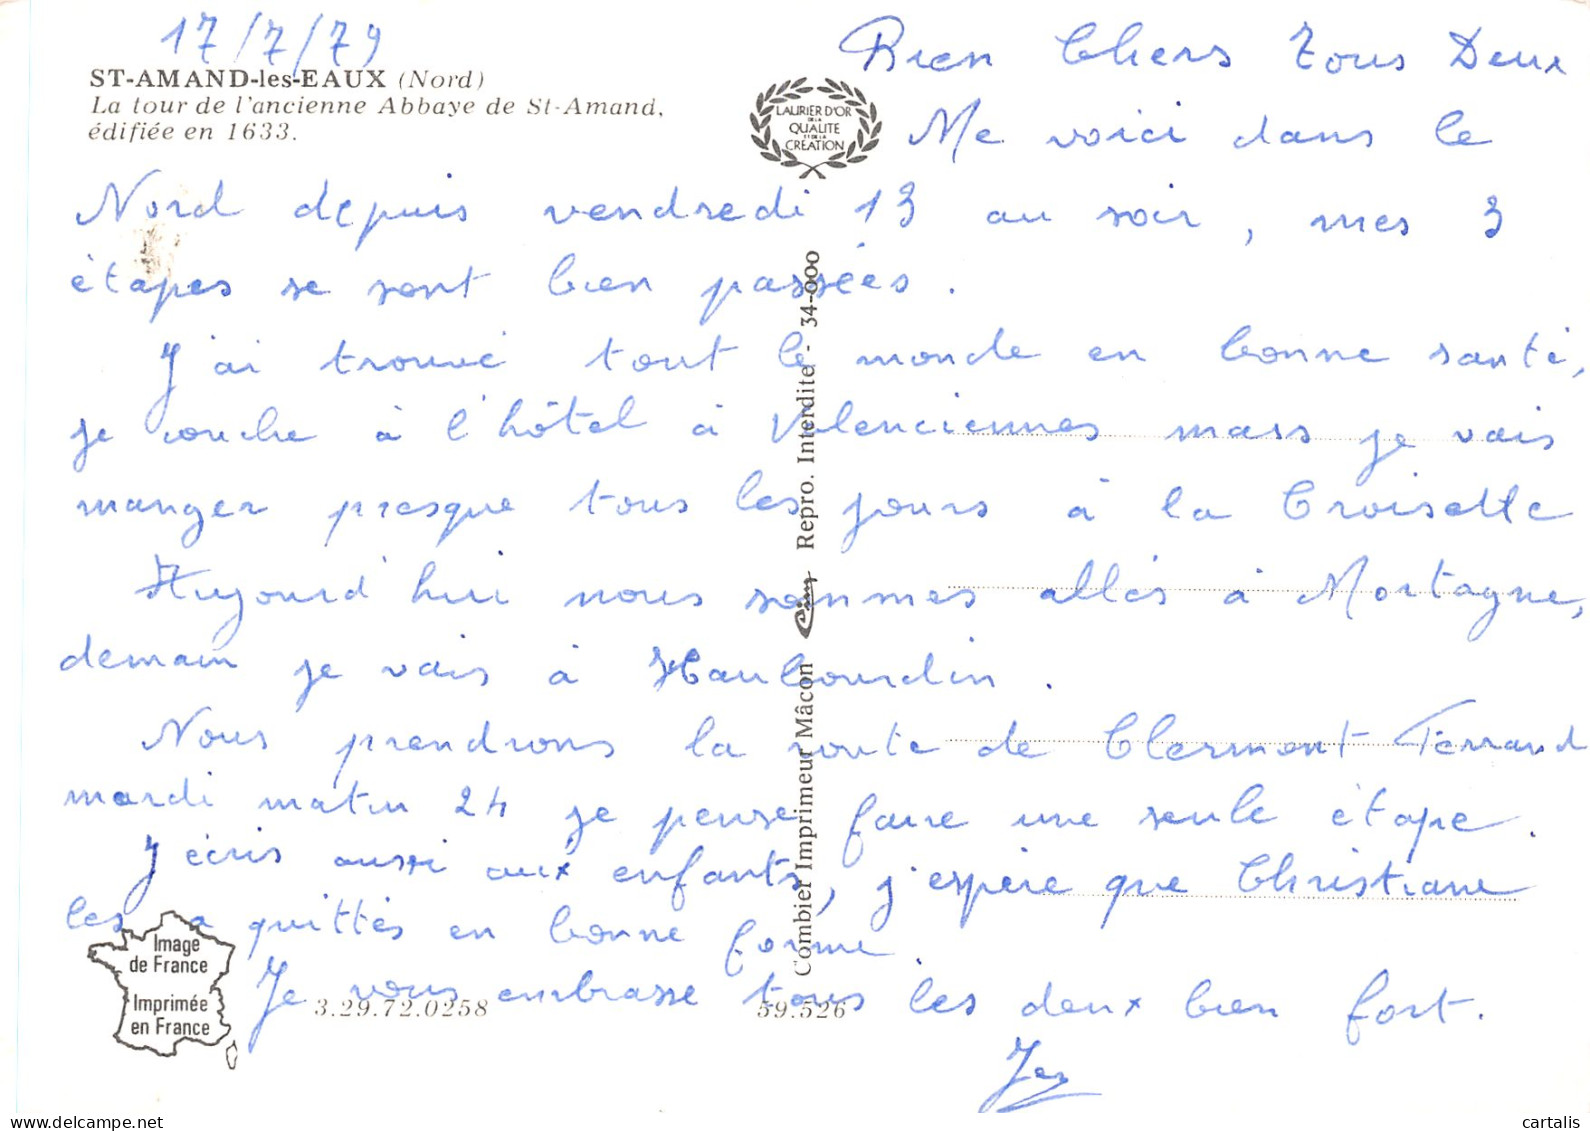 17/7/79
Bien Chers Tous Deux
ST-AMAND-les-EAUX (Nord)
La tour de l'ancienne Abbaye de St-Amand,
édifiée en 1633.
LAURIER D'OR
DE LA
QUALITE
ET DE LA
CREATION
Me voici dans le
Nord depuis vendredi 13 au soir, mes 3
étapes se sont bien passées.
J'ai trouvé tout le monde en bonne santé,
je couche à l'hôtel à Valenciennes mais je vais
manger presque tous les jours à la Croisette
Aujourd'hui nous sommes allés à Mortagne,
demain je vais à Haubourdin.
Nous prendrons la route de Clermont-Ferrand
mardi matin 24 je pense faire une seule étape.
J'écris aussi aux enfants, j'espère que Christiane
les a quittés en bonne forme
Je vous embrasse tous les deux bien fort.
Image
de France
Imprimée
en France
3.29.72.0258
59.526
Combier Imprimeur Mâcon Cim Repro. Interdite - 34-000
cartalis